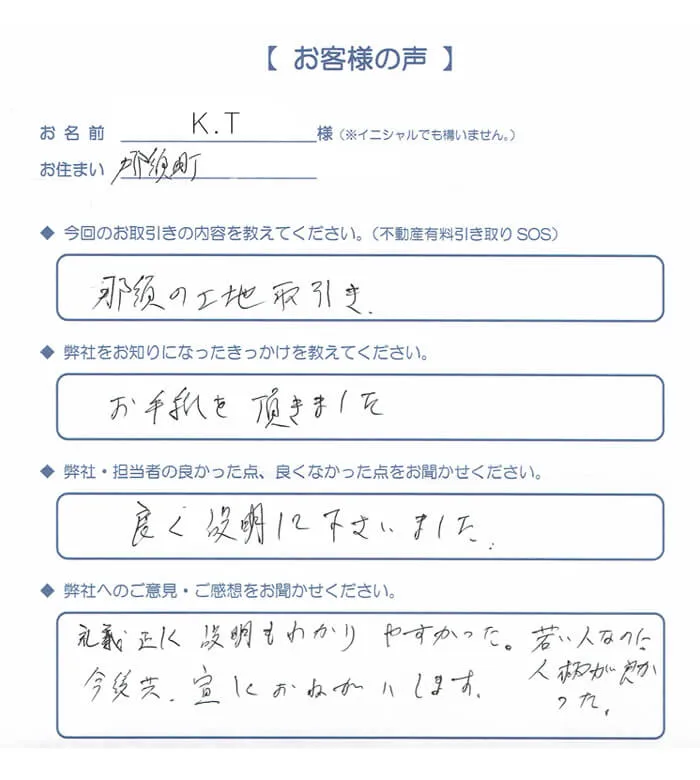 【 お客様の声 】
お名前 K.T 様(※イニシャルでも構いません。)
お住まい 那須町
◆ 今回のお取引きの内容を教えてください。(不動産有料引き取りSOS)
那須の土地取引き.
◆ 弊社をお知りになったきっかけを教えてください。
お手紙を頂きました
◆ 弊社・担当者の良かった点、良くなかった点をお聞かせください。
良く説明して下さいました.
◆ 弊社へのご意見・ご感想をお聞かせください。
礼義正しく説明もわかりやすかった。若い人なのに
今後共、宜しくおねがいします.
人柄が良か
った。